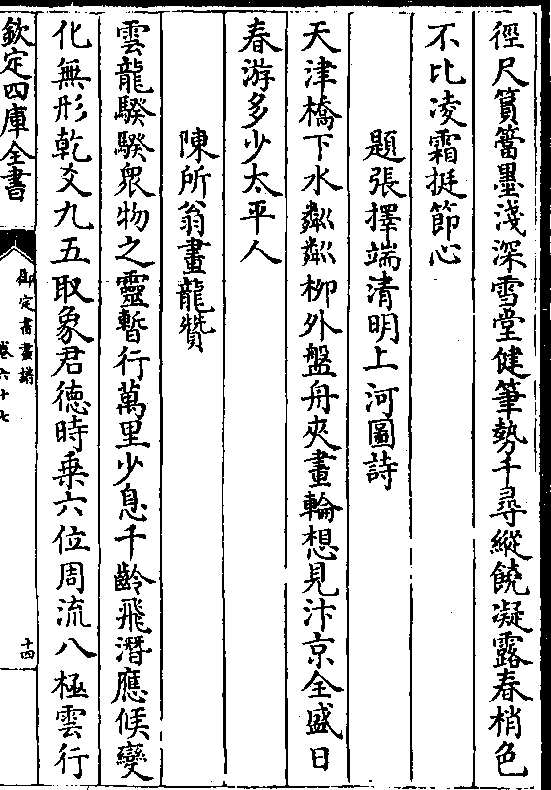 徑尺篔簹墨淺深雪堂健筆勢千尋縱饒凝露春梢色
不比凌霜挺節心
題張擇端清明上河圖詩
天津橋下水粼粼柳外盤舟夾畫輪想見汴京全盛日
春游多少太平人
陳所翁畫龍贊
雲龍騤騤眾物之靈暫行萬里少息千齡飛潛應候變
化無形乾爻九五取象君德時乗六位周流八極雲行
欽定四庫全書
御定書畫譜
卷六十七
十四